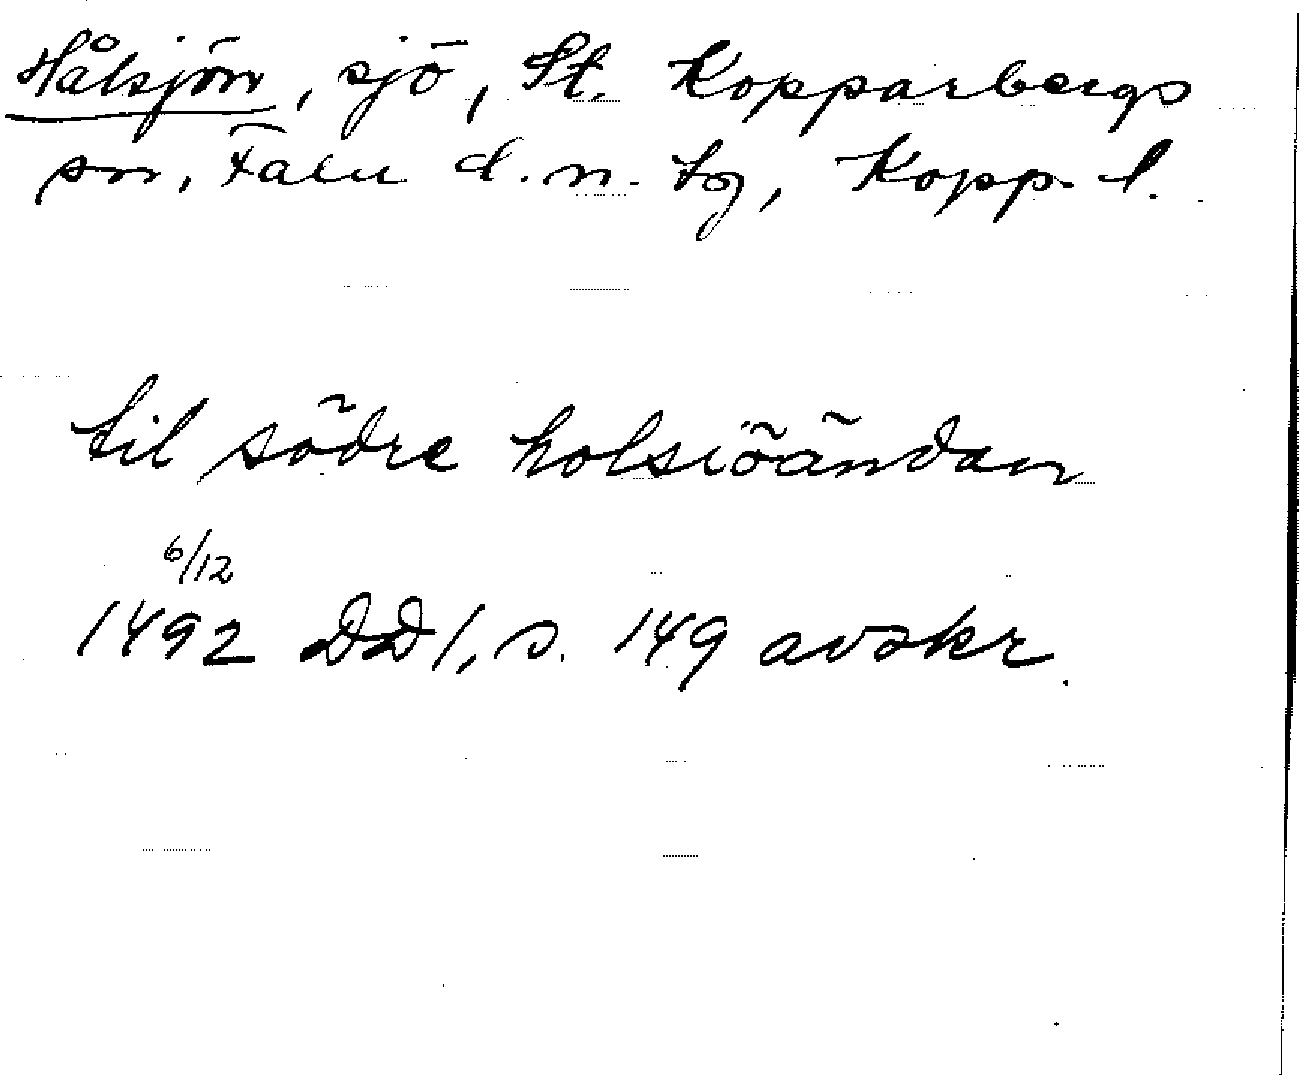 Hålsjön, sjö, St. Kopparbergs
sn, Falu d. n. tg, Kopp. l.
til södre holsiöändan
6/12
1492 DD1, s. 149 avskr.